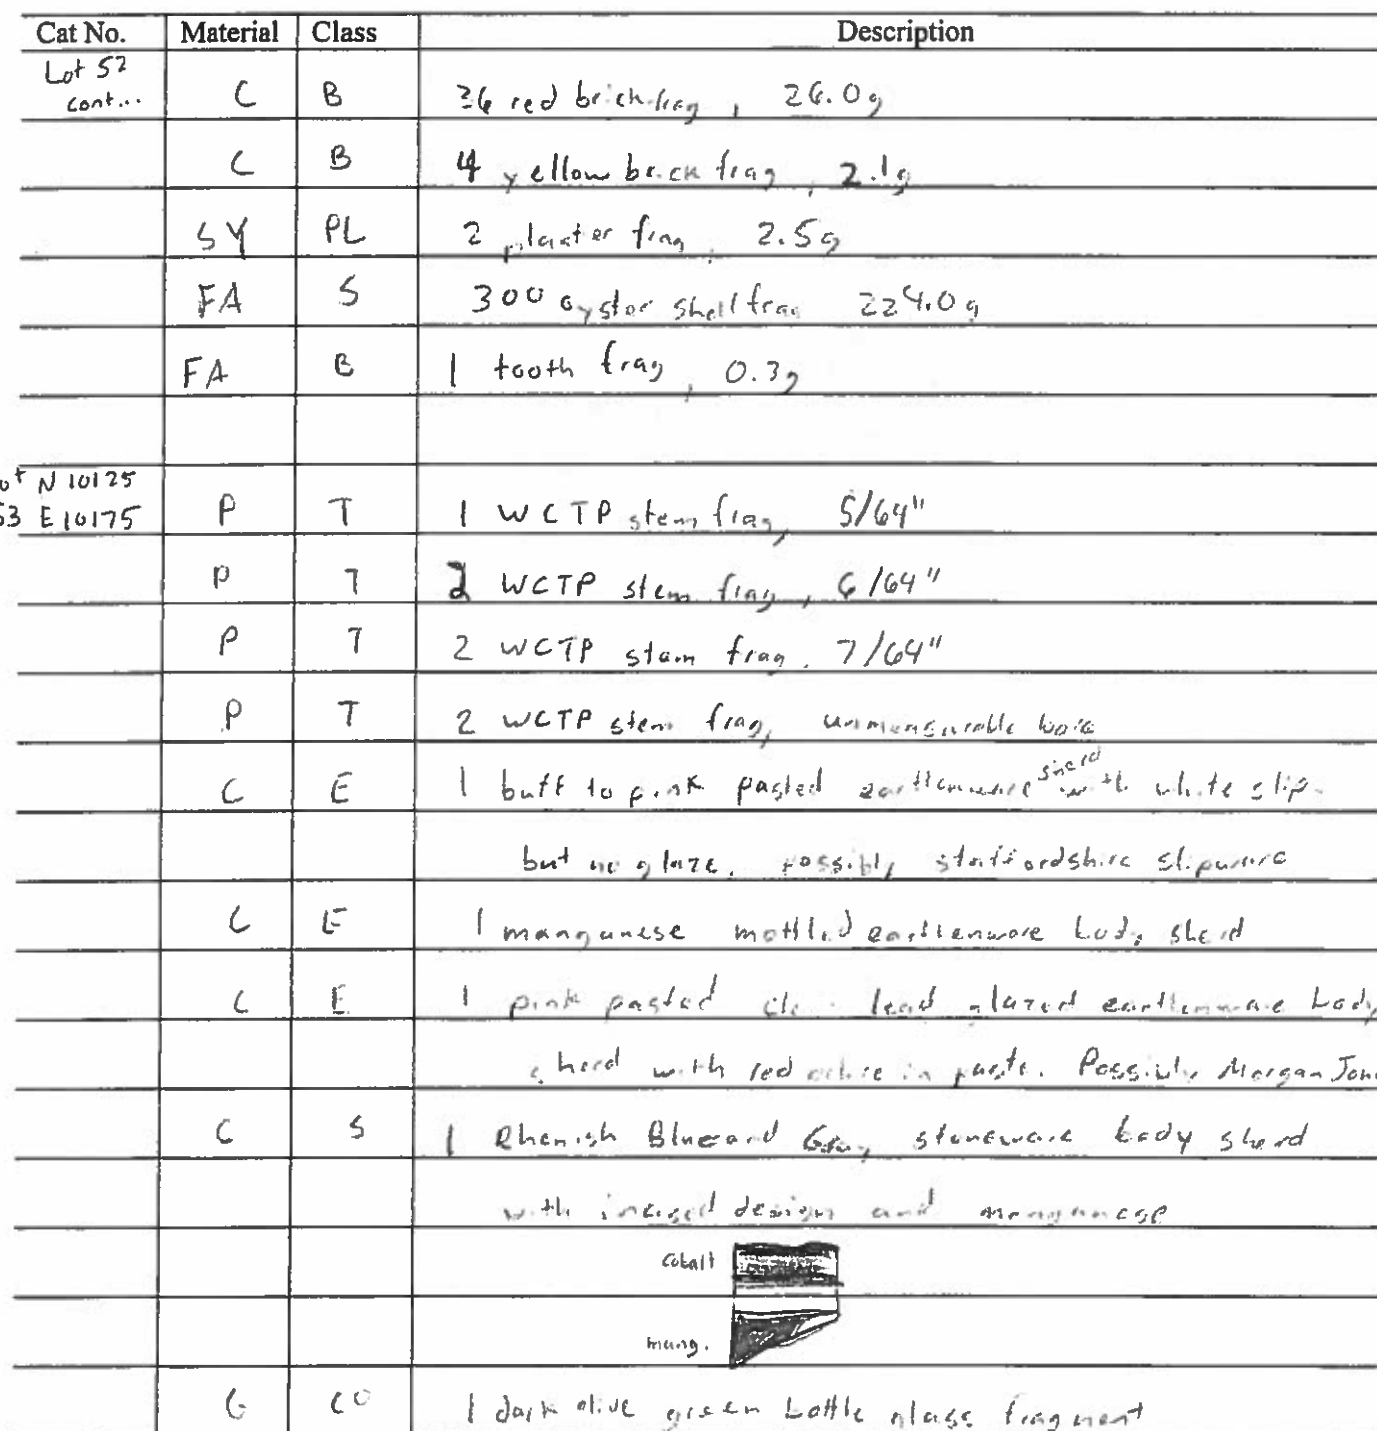 Cat No. Material Class Description
Lot 52
cont... C B 36 red brick frag, 26.0g
C B 4 yellow brick frag, 2.1g
SY PL 2 plaster frag, 2.5g
FA S 300 oyster shell frag 224.0g
FA B 1 tooth frag, 0.3g
N 10125
53 E 10175 P T 1 WCTP stem frag, 5/64"
P T 2 WCTP stem frag, 6/64"
P T 2 WCTP stem frag, 7/64"
P T 2 WCTP stem frag, unmeasurable bore
C E 1 buff to pink pasted earthenware sherd with white slip
but no glaze, possibly staffordshire slipware
C E 1 manganese mottled earthenware body sherd
C E 1 pink pasted lead glazed earthenware body
sherd with red ochre in paste. Possibly Morgan Jon
C S 1 Rhenish Blue and Gray stoneware body sherd
with incised design and manganese
cobalt
mang.
G CO 1 dark olive green bottle glass fragment